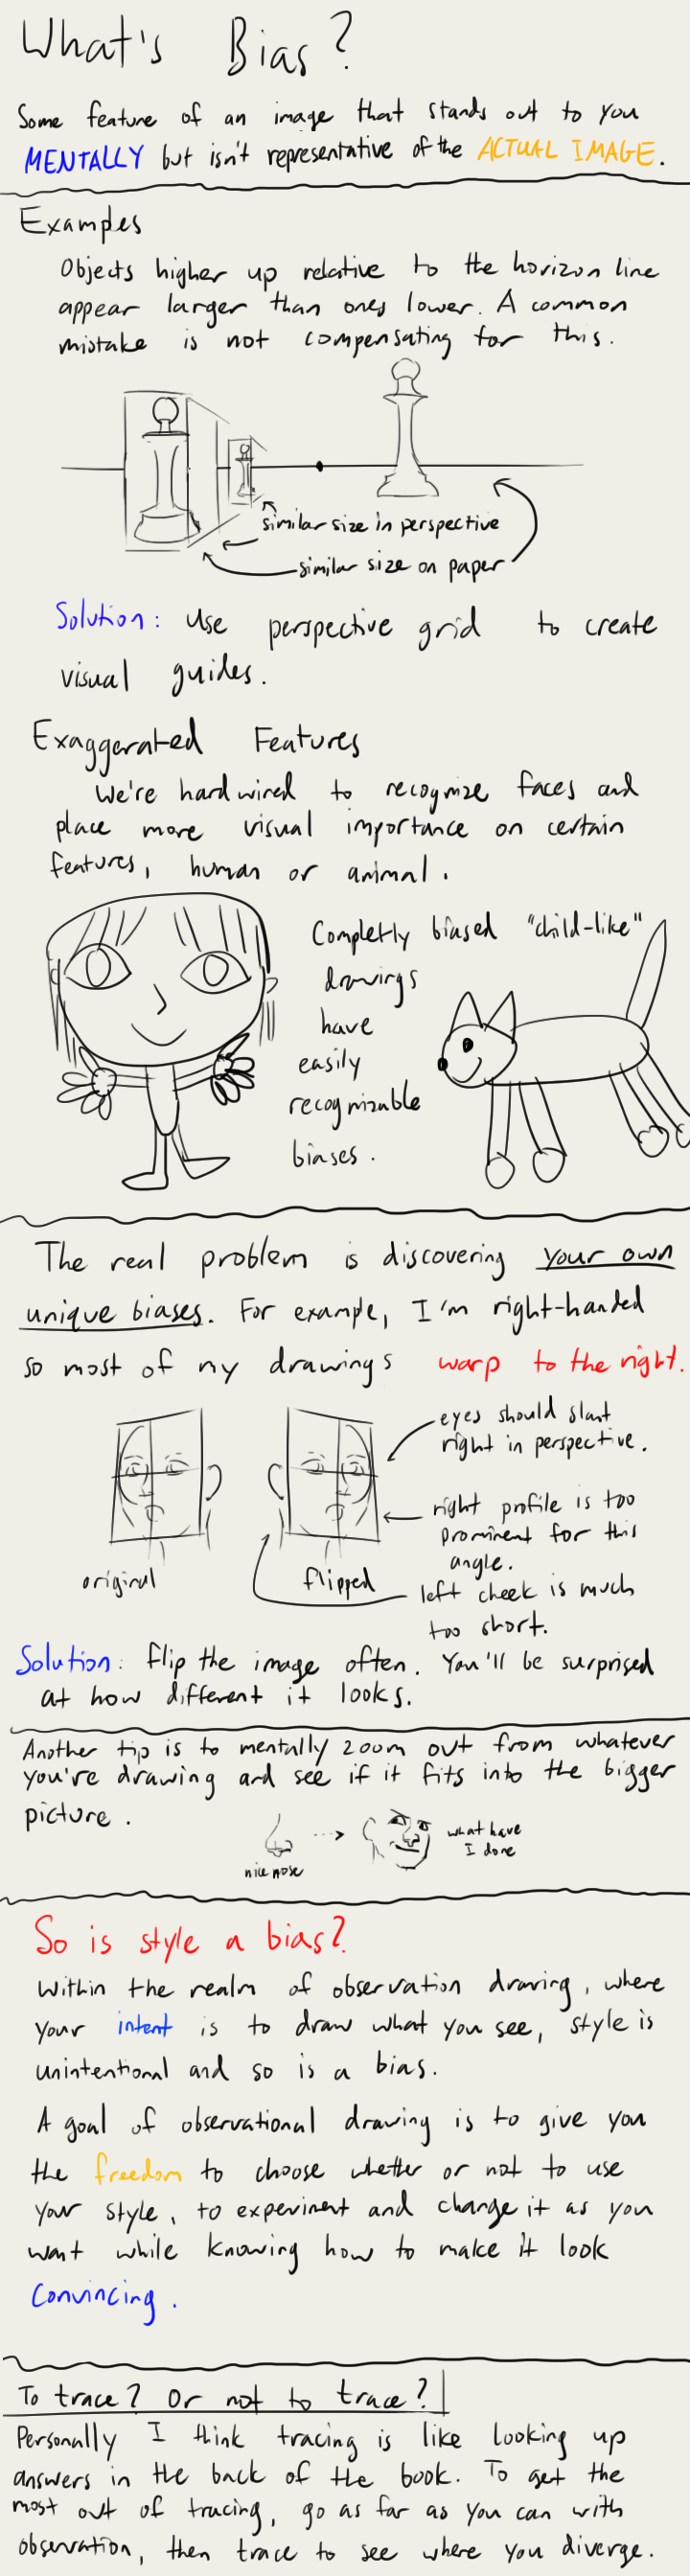 What's Bias?
Some feature of an image that stands out to you
MENTALLY but isn't representative of the ACTUAL IMAGE.
Examples
Objects higher up relative to the horizon line
appear larger than ones lower. A common
mistake is not compensating for this.
similar size in perspective
similar size on paper
Solution: Use perspective grid to create
visual guides.
Exaggerated Features
We're hardwired to recognize faces and
place more visual importance on certain
features, human or animal.
Completly biased "child-like"
drawings
have
easily
recognizable
biases.
The real problem is discovering your own
unique biases. For example, I'm right-handed
so most of my drawings warp to the right.
eyes should slant
right in perspective.
right profile is too
prominent for this
angle.
original
flipped
left cheek is much
too short.
Solution: Flip the image often. You'll be surprised
at how different it looks.
Another tip is to mentally zoom out from whatever
you're drawing and see if it fits into the bigger
picture.
nice nose
what have
I done
So is style a bias?
Within the realm of observation drawing, where
your intent is to draw what you see, style is
unintentional and so is a bias.
A goal of observational drawing is to give you
the freedom to choose whether or not to use
your style, to experiment and change it as you
want while knowing how to make it look
convincing.
To trace? Or not to trace?
Personally I think tracing is like looking up
answers in the back of the book. To get the
most out of tracing, go as far as you can with
observation, then trace to see where you diverge.